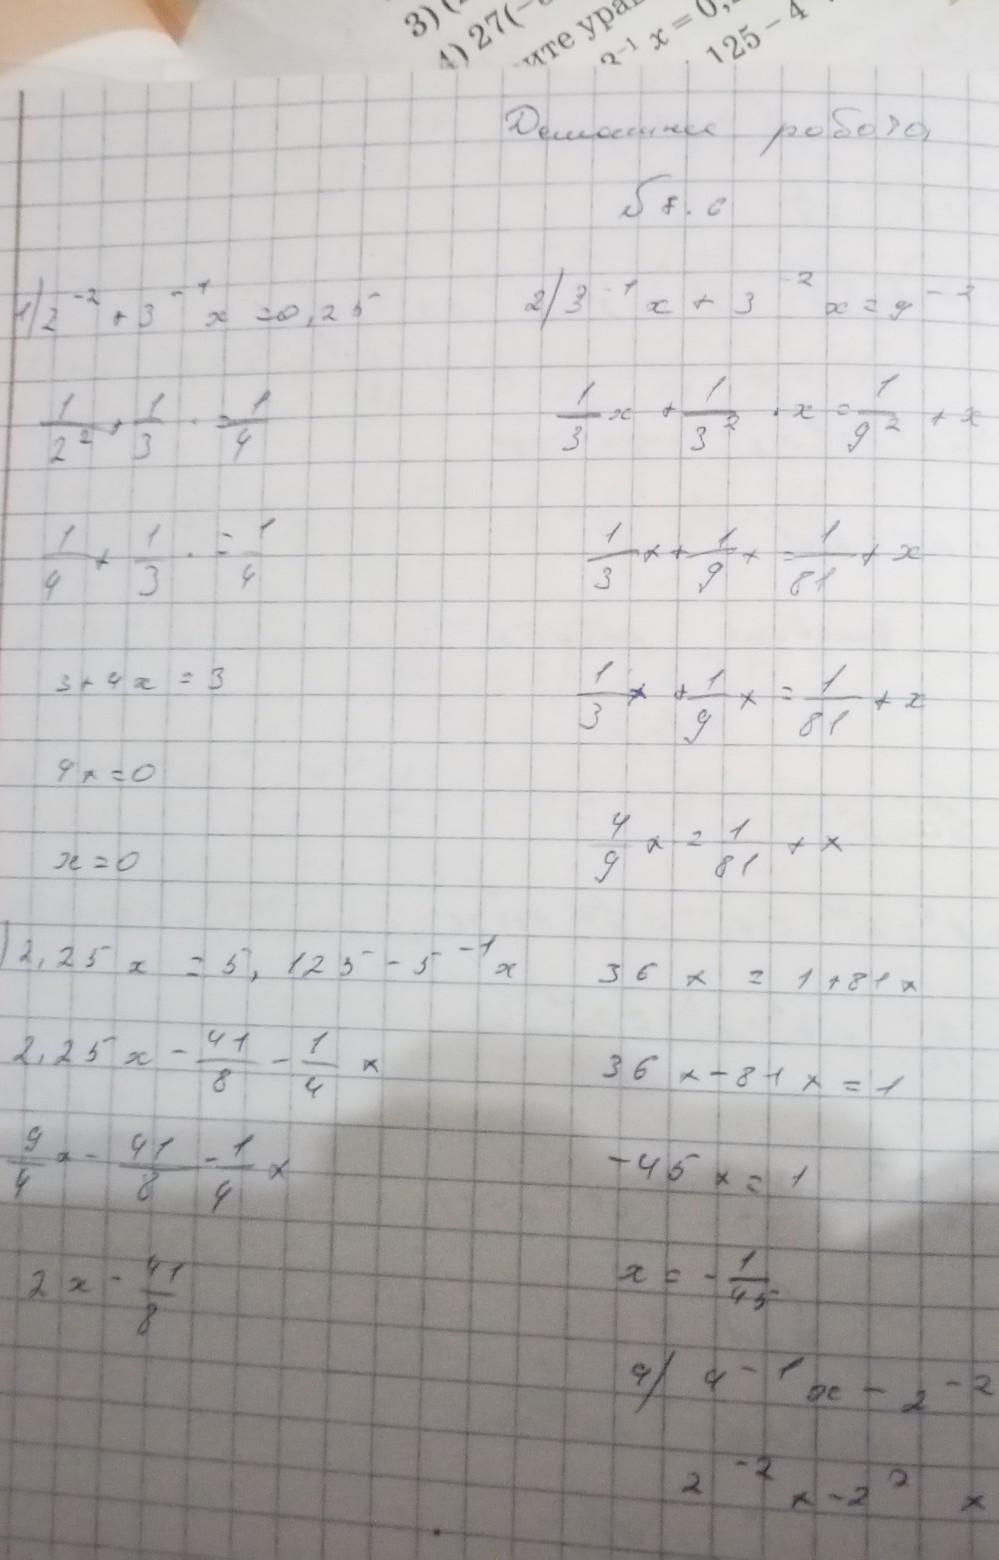 3)
4) 27(
ите ура
x = 0,
125 – 4
Домашнее робота
№ 8.6
1) 2⁻² + 3⁻¹ x = 0,25
1/2² + 1/3 · = 1/4
1/4 + 1/3 · = 1/4
3 + 4x = 3
4x = 0
x = 0
) 2,25 x = 5,125 - 5⁻¹ x
2,25 x - 41/8 - 1/4 x
9/4 x - 41/8 - 1/4 x
2x - 41/8
2) 3⁻¹ x + 3⁻² x = 9⁻² 
1/3 x + 1/3² · x = 1/9² + x
1/3 x + 1/9 x = 1/81 + x
1/3 x + 1/9 x = 1/81 + x
4/9 x = 1/81 + x
36 x = 1 + 81 x
36 x - 81 x = 1
-45 x = 1
x = - 1/45
4) 4⁻¹ x - 2⁻²
2⁻² x - 2² x